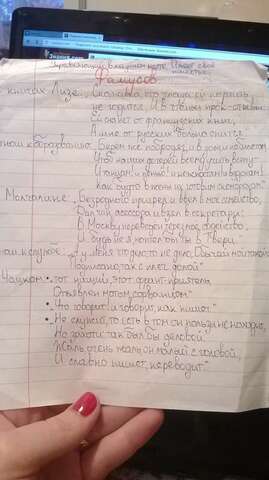 Управляющий в казённом месте. Имеет своё поместье.
Фамусов
книгах Лизе: „Скажи-ка, что глаза ей портить не годится, И в чтеньи прок-от невелик:
Ей сна нет от французских книг,
А мне от русских больно спится
образовании: Берём же побродяг, и в дом, и по билетам,
Чтоб наших дочерей всему учить, всему –
И танцам! и пенью! и нежностям! и вздохам!
как будто в жены их готовим скоморохам."
Молчалине: „Безродного пригрел и ввёл в моё семейство,
Дал чин асессора и взял в секретари;
В Москву переведён через моё содейство;
И будь не я, коптел бы ты в Твери."
к службе: „А у меня, что дело, что не дело, Обычай мой такой:
Подписано, так с плеч долой"
Чацком • тот нищий, этот франт-приятель
Объявлен мотом, сорванцом"
• Что говорит! и говорит, как пишет!"
• Не служит, то есть в том он пользы не находит,
Но захоти: так был бы деловой.
Жаль, очень жаль, он малый с головой,
И славно пишет, переводит."